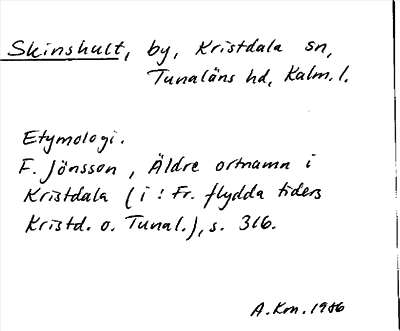 Skinshult, by, Kristdala sn,
Tunaläns hd, Kalm. l.
Etymologi.
F. Jönsson, Äldre ortnamn i
Kristdala (i: Fr. flydda tiders
Kristd. o. Tunal.), s. 316.
A.Km. 1986